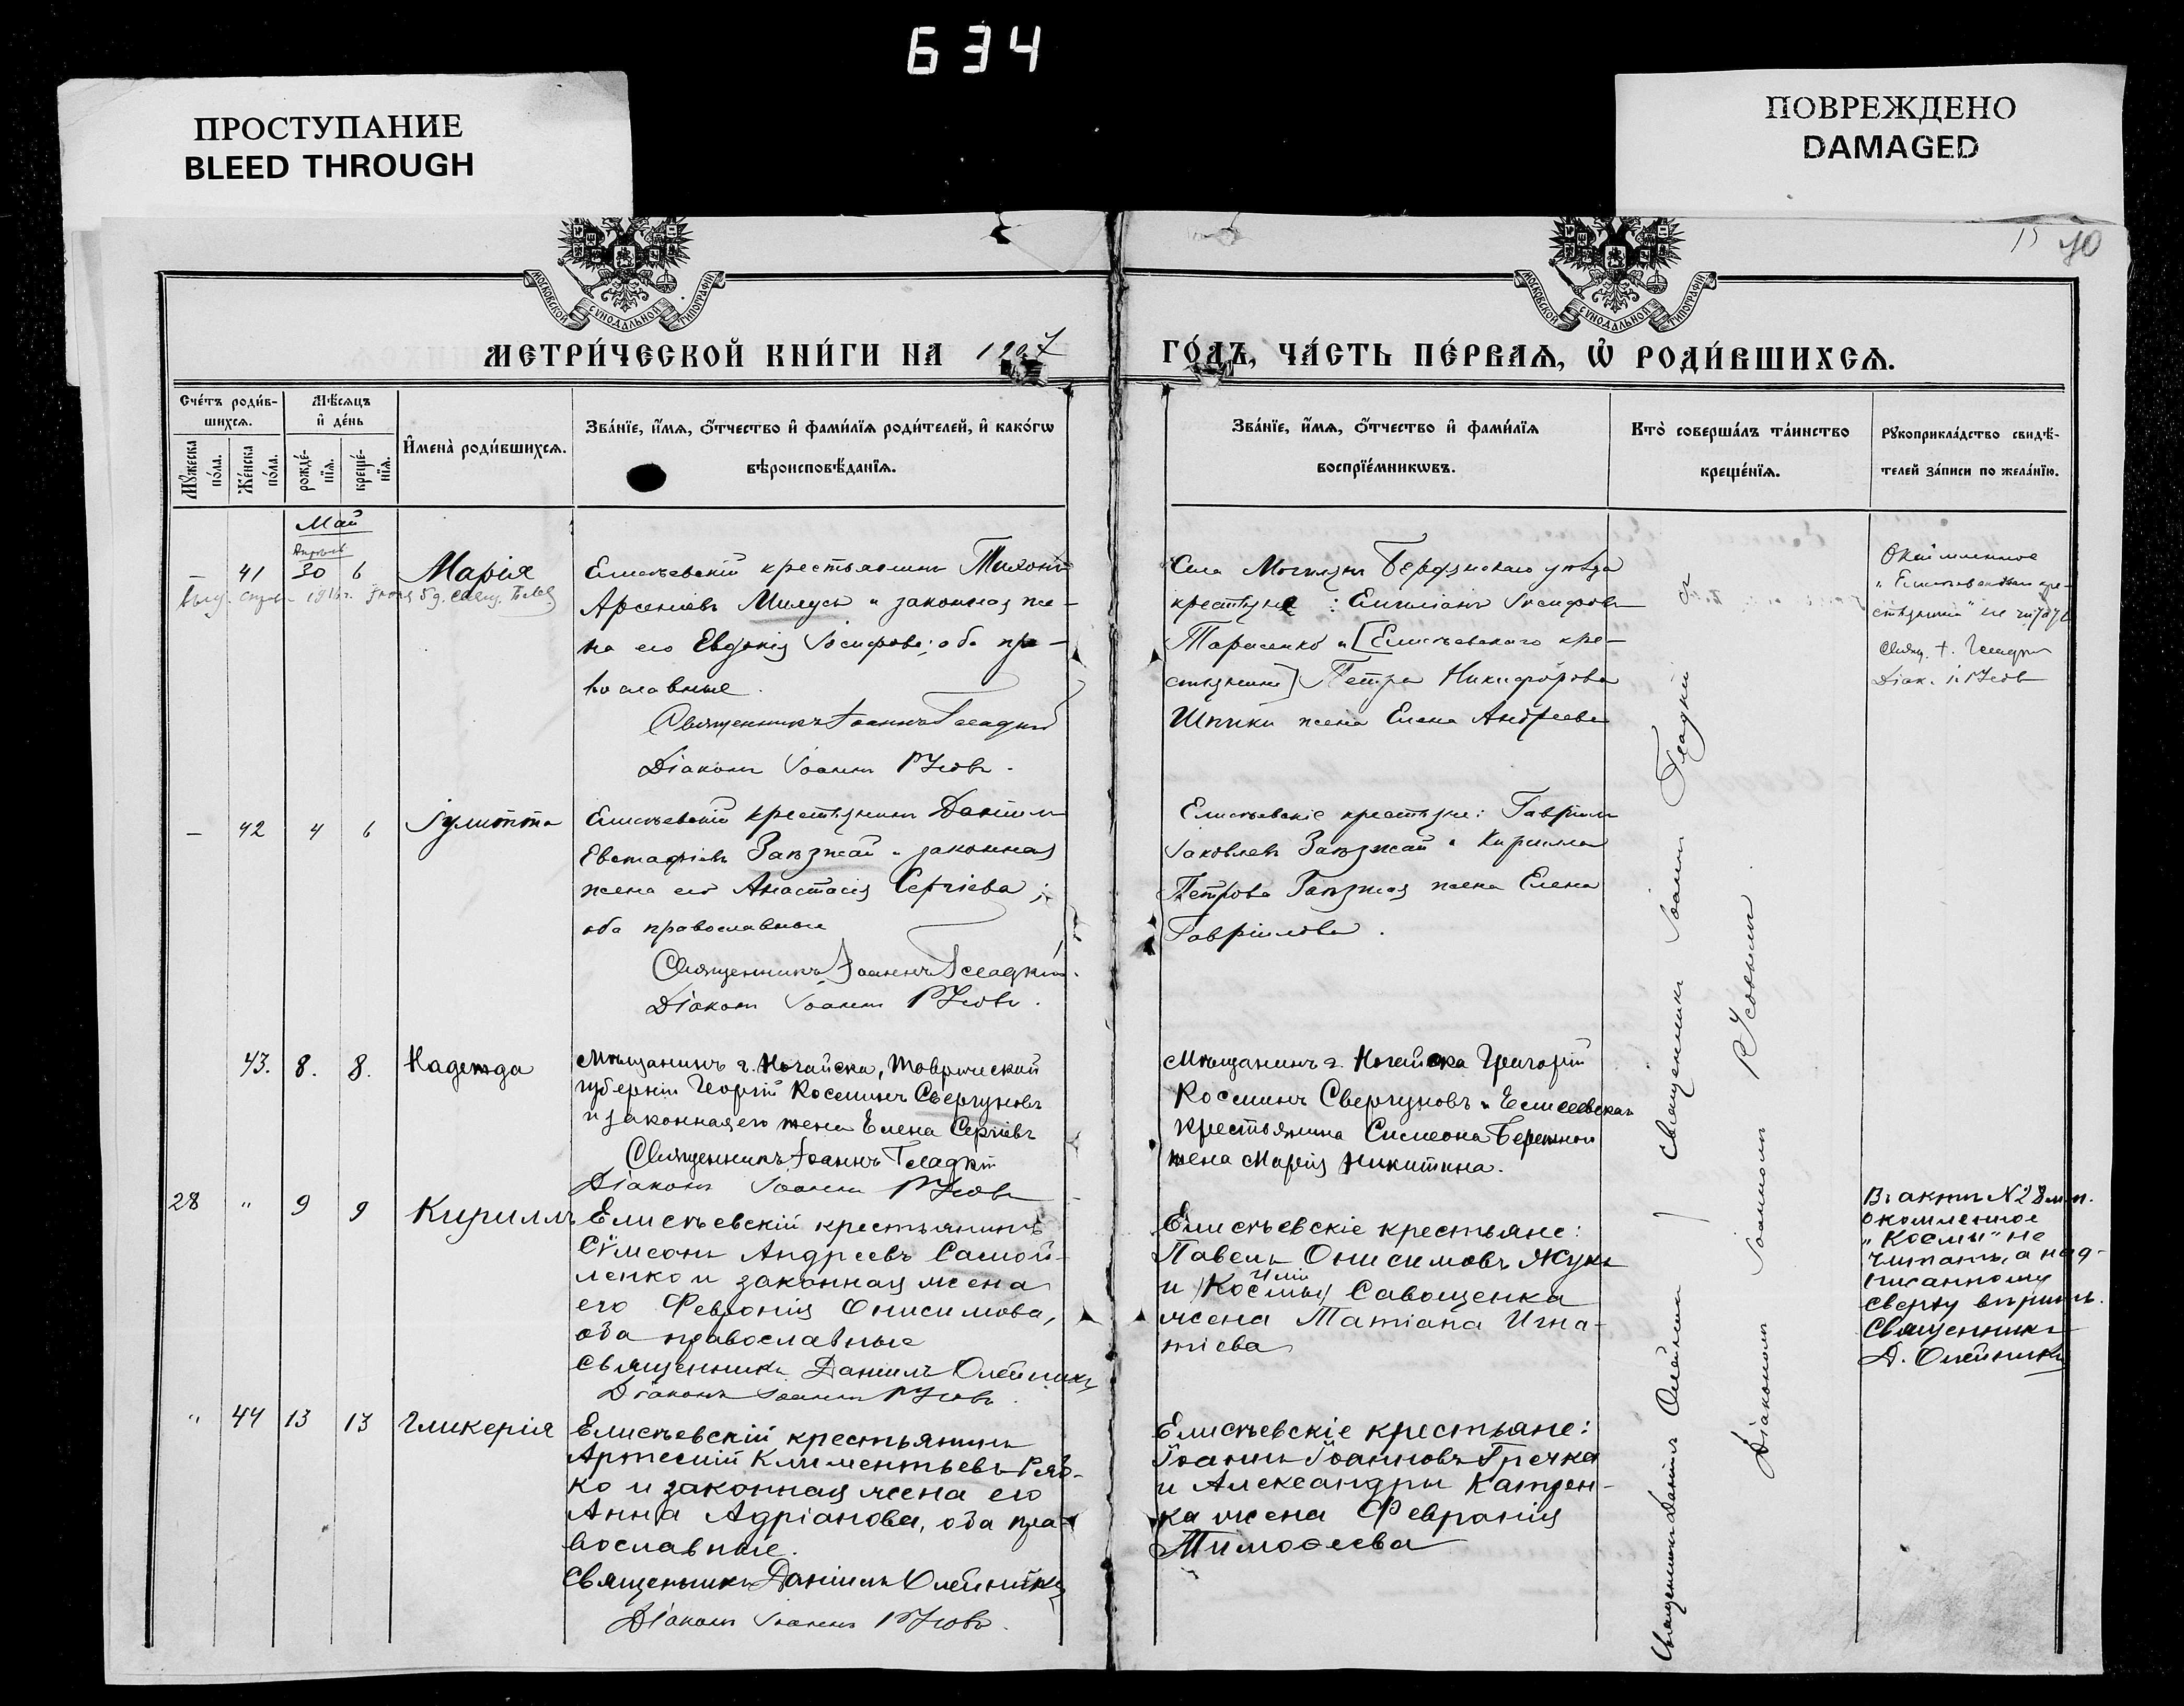 634
ПРОСТУПАНИЕ
BLEED THROUGH
ПОВРЕЖДЕНО
DAMAGED
40
МОСКОВСКОЙ СѴНОДАЛЬНОЙ ТИПОГРАФІИ
МОСКОВСКОЙ СѴНОДАЛЬНОЙ ТИПОГРАФІИ
МЕТРИ́ЧЕСКОЙ КНИ́ГИ НА 1907
ГО́ДЪ, ЧА́СТЬ ПЕ́РВАѦ, Ѡ҆ РОДИ́ВШИХСѦ.
Сче́тъ роди́в-
шихсѧ.
Мꙋжеска по́ла.
Же́нска по́ла.
Мѣ́сѧцъ
и҆ де́нь
рожде́-нїѧ.
креще́-нїѧ.
И҆мена̀ роди́вшихсѧ.
Зва́нїе, и҆́мѧ, ѻ҆́тчество и҆ фами́лїѧ роди́телей, и҆ како́гѡ
вѣроисповѣ́данїѧ.
Зва́нїе, и҆́мѧ, ѻ҆́тчество и҆ фами́лїѧ
воспрїе́мникѡвъ.
Кто̀ соверша́лъ та́инство
креще́нїѧ.
Рꙋкоприкла́дство свидѣ́-
телей за́писи по жела́нїю.
Май
Апрѣль
— 41 30 6 Марія
Елисѣевскій крестьянинъ Тихонъ
Арсеніевъ Милусь и законная же-
на его Евдокія Іосифова; оба пра-
вославные.
Священникъ Іоаннъ Гладкій
Діаконъ Іоаннъ Усовъ.
Села Бердянскаго уѣзда
крестьяне: Емиліанъ Іосифовъ
Тарасенко и [Елисѣевскаго кре-
стьянина] Петра Никифорова
Шпики жена Елена Андреева
Окаймленное
"Елисѣевскаго кре-
стьянина" не читать
Свящ. І. Гладкій
Діак. І. Усовъ
— 42 4 6 Іулитта
Елисѣевскій крестьянинъ Даніилъ
Евстафіевъ Заѣзжай и законная
жена его Анастасія Сергіева;
оба православные
Священникъ Іоаннъ Гладкій.
Діаконъ Іоаннъ Усовъ.
Елисѣевскіе крестьяне: Гавріилъ
Іаковлевъ Заѣзжай и Кирилла
Петрова Заѣзжая жена Елена
Гавріилова.
43. 8. 8. Надежда
Мѣщанинъ г. Ногайска, Таврической
губерніи Георгій Косминъ Свергуновъ
и законная его жена Елена Сергіева
Священникъ Іоаннъ Гладкій
Діаконъ Іоаннъ Усовъ
Мѣщанинъ г. Ногайска Григорій
Косминъ Свергуновъ и Елисеевская
крестьянина Симеона Бережной
жена Марія Никитина.
28 " 9 9 Кириллъ
Елисѣевскій крестьянинъ
Сѵмеонъ Андреевъ Самой-
ленко и законная жена
его Февронія Онисимова,
оба православные
Священникъ Даніилъ Олейникъ
Діаконъ Іоаннъ Усовъ.
Елисѣевскіе крестьяне:
Павелъ Онисимовъ Жукъ
и (Космы) Савощенка
жена Татіана Игна-
тіева
Въ актѣ №28 м.п.
окаймленное
"Космы" не
читать, а над-
писанному
сверху вѣрить.
Священникъ
Д. Олейникъ
" 44 13 13 Гликерія
Елисѣевскій крестьянинъ
Артемій Климентьевъ Ряб-
ко и законная жена его
Анна Адріанова, оба пра-
вославные.
Священникъ Даніилъ Олейникъ
Діаконъ Іоаннъ Усовъ.
Елисѣевскіе крестьяне:
Іоаннъ Іоанновъ Гречка
и Александры Катрен-
ка жена Февронія
Тимоѳеева
Священники Даніилъ Олейникъ и Священникъ Іоаннъ Гладкій съ
Діакономъ Іоанномъ Усовымъ